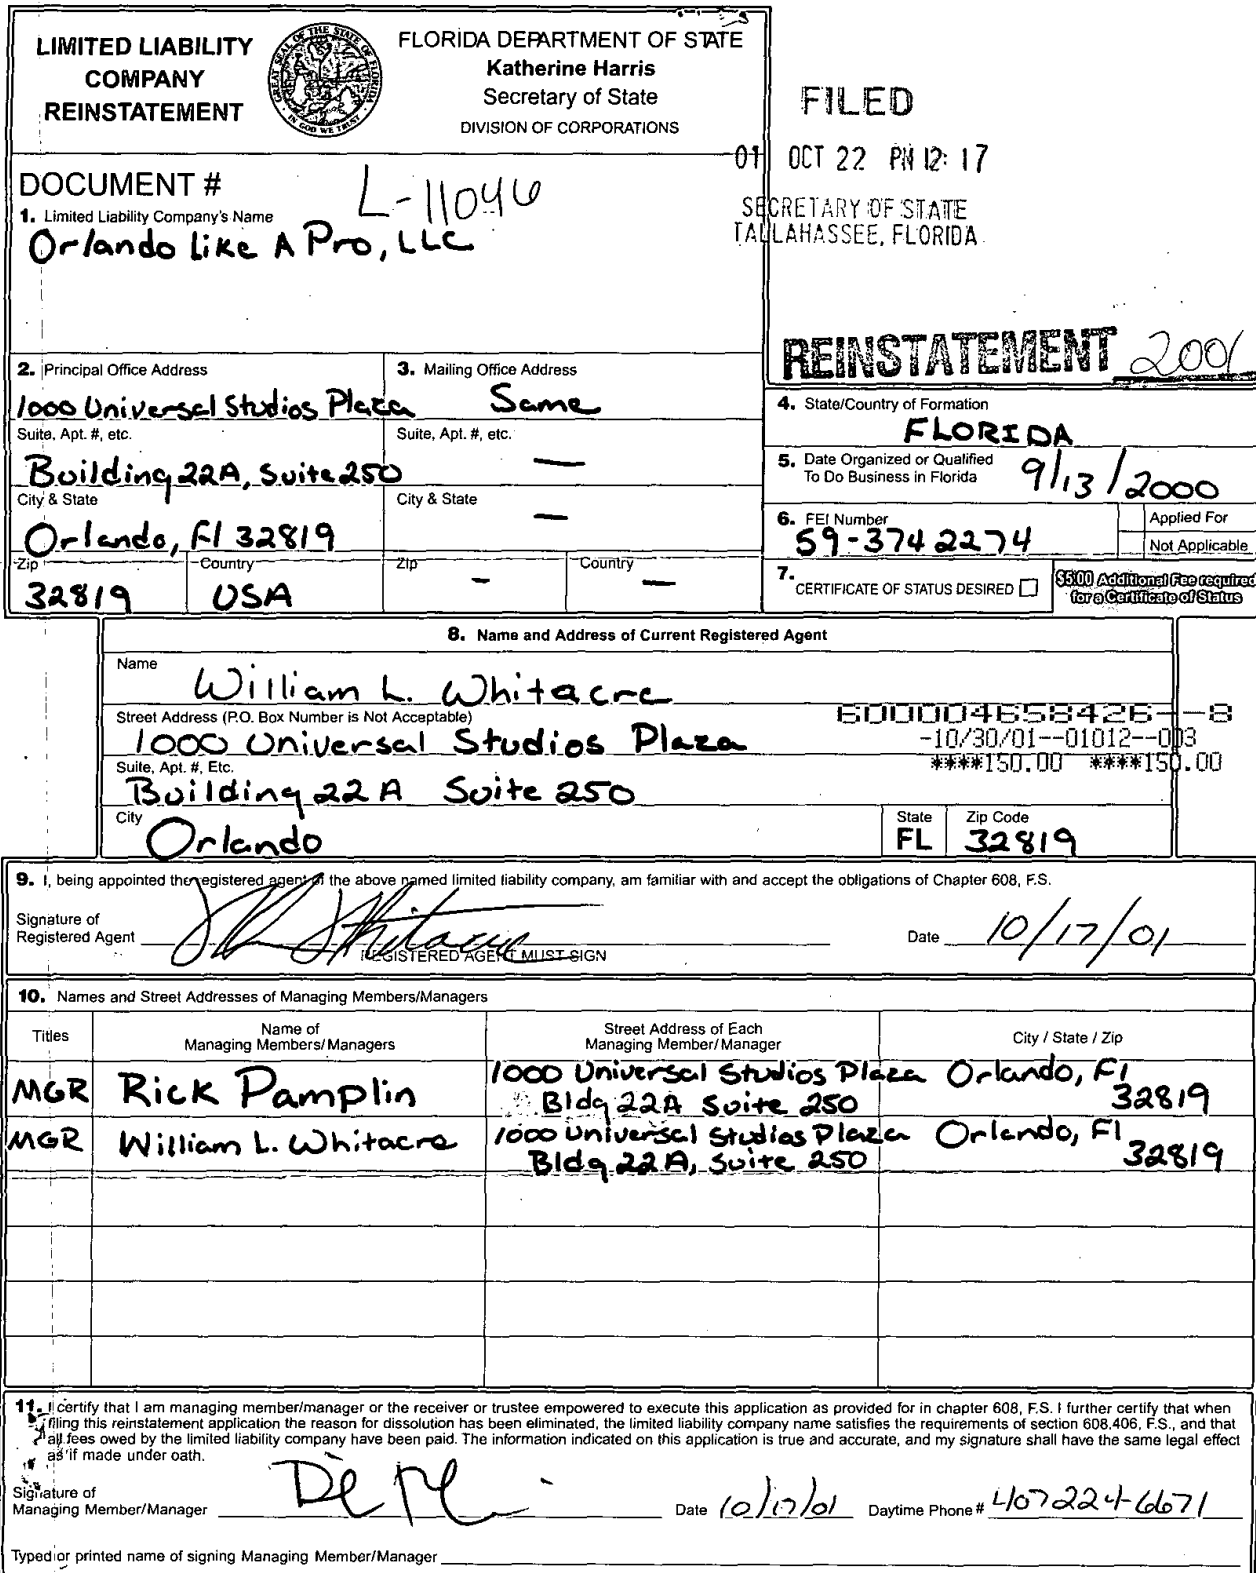 LIMITED LIABILITY
COMPANY
REINSTATEMENT
GREAT SEAL OF THE STATE OF FLORIDA
IN GOD WE TRUST
FLORIDA DEPARTMENT OF STATE
Katherine Harris
Secretary of State
DIVISION OF CORPORATIONS
FILED
01 OCT 22 PM 12:17
SECRETARY OF STATE
TALLAHASSEE, FLORIDA
DOCUMENT # L-11046
1. Limited Liability Company's Name
Orlando Like A Pro, LLC
REINSTATEMENT 2001
2. Principal Office Address
1000 Universal Studios Plaza
Suite, Apt. #, etc.
Building 22A, Suite 250
City & State
Orlando, Fl 32819
Zip Country
32819 USA
3. Mailing Office Address
Same
Suite, Apt. #, etc.
—
City & State
—
Zip Country
— —
4. State/Country of Formation
FLORIDA
5. Date Organized or Qualified
To Do Business in Florida 9/13/2000
6. FEI Number
59-3742274
Applied For
Not Applicable
7. CERTIFICATE OF STATUS DESIRED
$5.00 Additional Fee required
for a Certificate of Status
8. Name and Address of Current Registered Agent
Name
William L. Whitacre
Street Address (P.O. Box Number is Not Acceptable)
1000 Universal Studios Plaza
600004658426--8
-10/30/01--01012--003
****150.00 ****150.00
Suite, Apt. #, Etc.
Building 22A Suite 250
City
Orlando
State
FL
Zip Code
32819
9. I, being appointed the registered agent of the above named limited liability company, am familiar with and accept the obligations of Chapter 608, F.S.
Signature of
Registered Agent
REGISTERED AGENT MUST SIGN
Date 10/17/01
10. Names and Street Addresses of Managing Members/Managers
Titles
Name of
Managing Members/Managers
Street Address of Each
Managing Member/Manager
City / State / Zip
MGR Rick Pamplin 1000 Universal Studios Plaza Orlando, Fl
Bldg 22A Suite 250 32819
MGR William L. Whitacre 1000 Universal Studios Plaza Orlando, Fl
Bldg 22A, Suite 250 32819
11. I certify that I am managing member/manager or the receiver or trustee empowered to execute this application as provided for in chapter 608, F.S. I further certify that when
filing this reinstatement application the reason for dissolution has been eliminated, the limited liability company name satisfies the requirements of section 608.406, F.S., and that
all fees owed by the limited liability company have been paid. The information indicated on this application is true and accurate, and my signature shall have the same legal effect
as if made under oath.
Signature of
Managing Member/Manager
Date 10/17/01 Daytime Phone # 407 224-6671
Typed or printed name of signing Managing Member/Manager